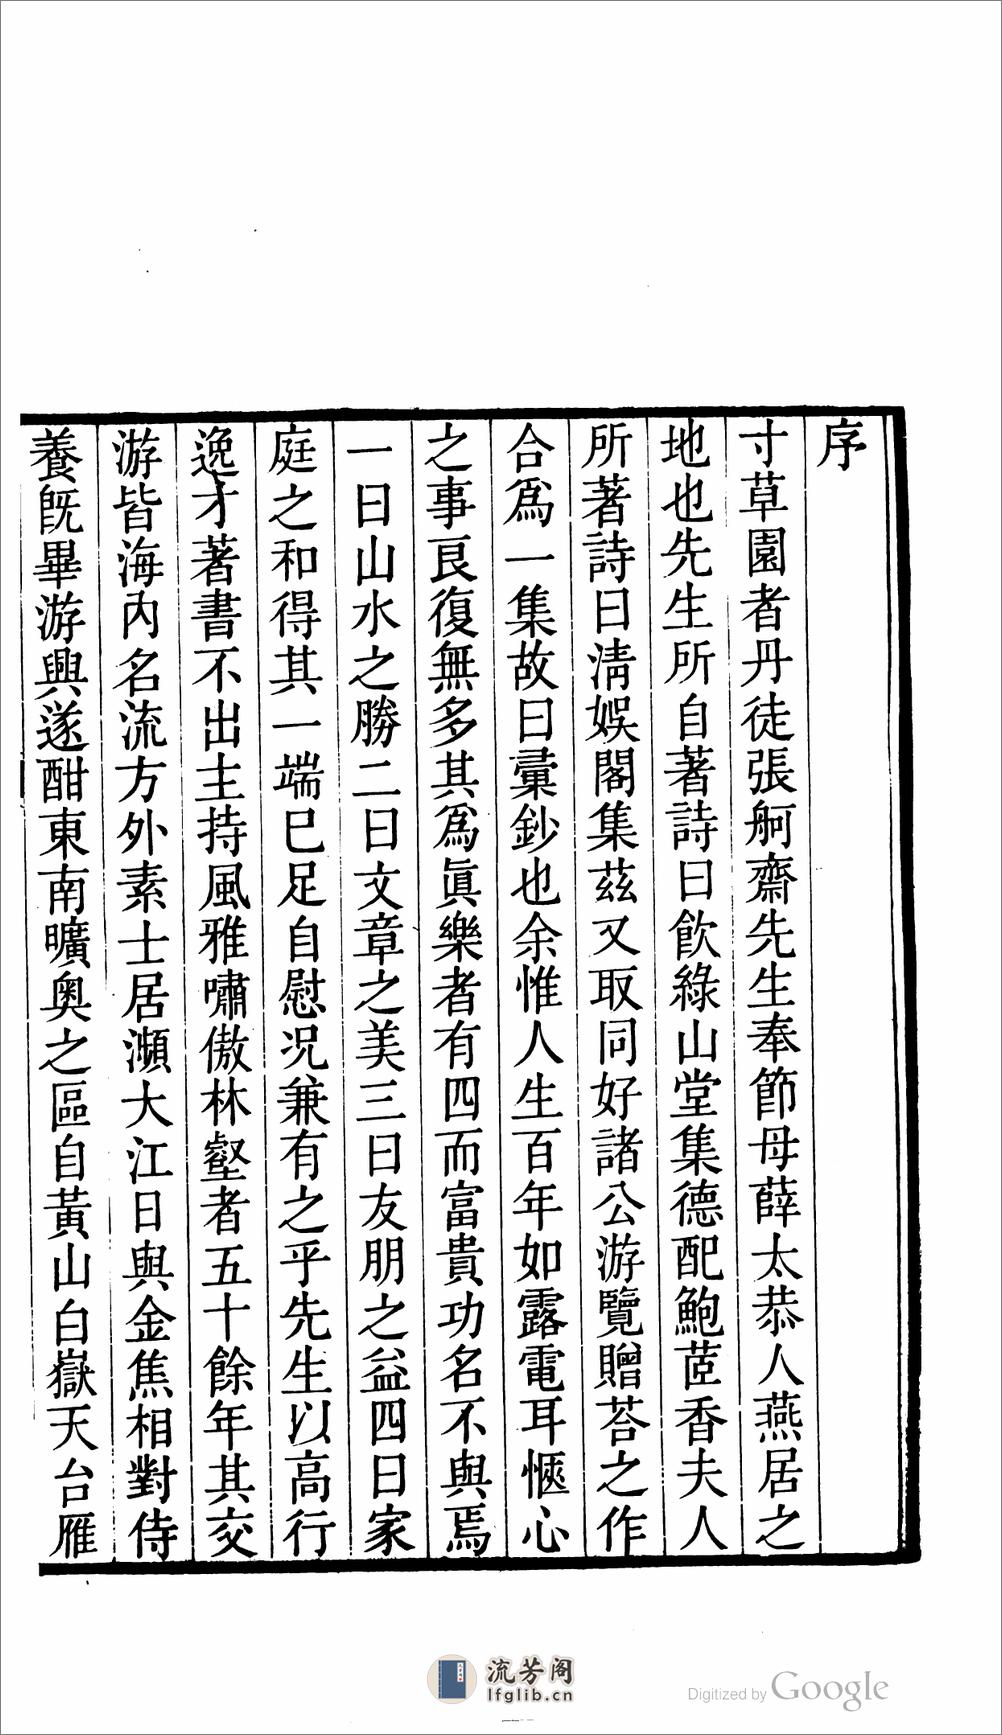 序
寸草園者丹徒張舸齋先生奉節母薛太恭人燕居之
地也先生所自著詩曰飲綠山堂集德配鮑茝香夫人
所著詩曰淸娛閣集茲又取同好諸公游覽贈荅之作
合爲一集故曰彙鈔也余惟人生百年如露電耳愜心
之事艮復無多其爲眞樂者有四而富貴功名不與焉
一曰山水之勝二曰文章之美三曰友朋之益四曰家
庭之和得其一端巳足自慰况兼有之乎先生以高行
逸才著書不出主持風雅嘯傲林壑者五十餘年其交
游皆海內名流方外素士居瀕大江日與金焦相對侍
養旣畢游興遂酣東南曠奥之區自黃山白嶽天台雁
流芳阁
lfglib.cn
Digitized by Google